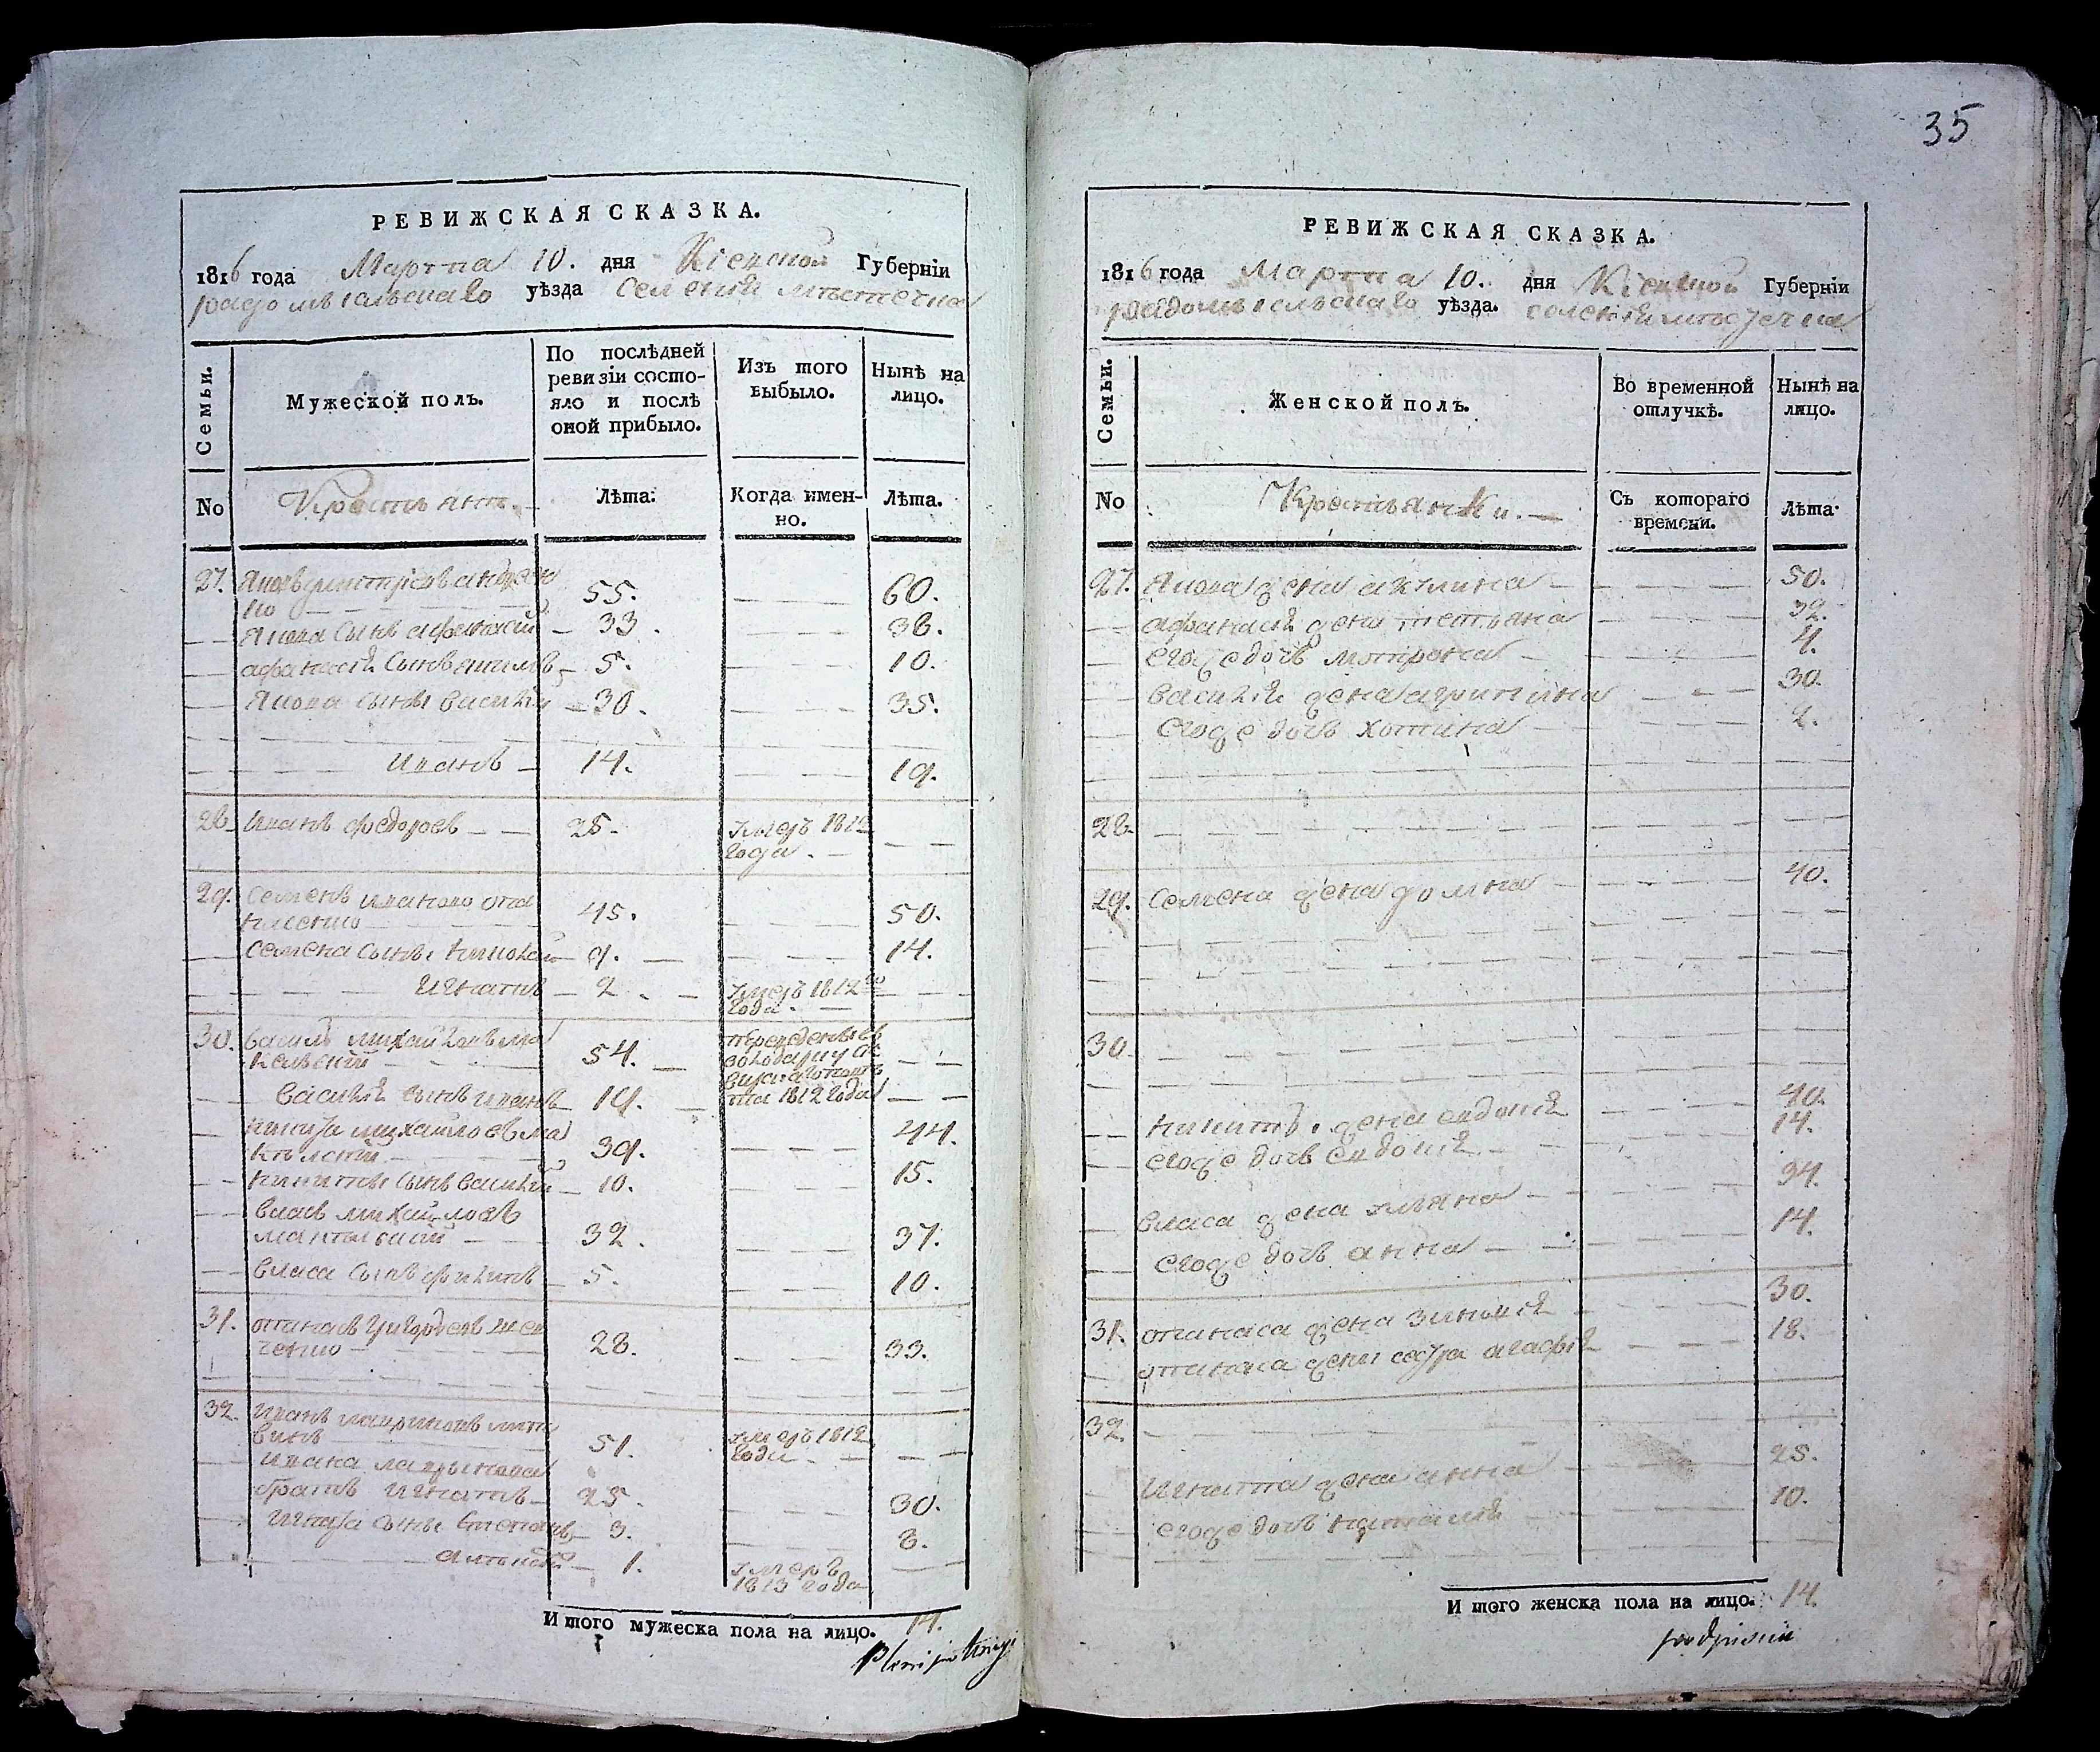 35
РЕВИЖСКАЯ СКАЗКА.
1816 года Марта 10. дня Кіевской Губерніи
радомысльскаго уѣзда Селенія мѣстечка
Семьи.
Мужеской полъ.
По послѣдней
ревизіи состо-
яло и послѣ
оной прибыло.
Изъ того
выбыло.
Нынѣ на
лицо.
No
Крестьянъ.
Лѣта.
Когда имен-
но.
Лѣта.
27. Яковъ
ко 55. 60.
Якова сынъ афанасий 33. 38.
афанасія Сынъ 5. 10.
Якова сынъ василій 30. 35.
Иванъ 14. 19.
28. Иванъ федоровъ 25. умеръ 1812
года.
29. Семенъ ивановъ
45. 50.
Семена Сынъ Николай 9. 14.
Игнатъ 2. умеръ 1812го
года.
30. василь михайловъ ма
кальский 54.
василія сынъ иванъ 19. 1812 года
никита михайловъ ма
39. 44.
никиты сынъ василий 10. 15.
власъ михайловъ
32. 37.
власа сынъ филипъ 5. 10.
31. опанасъ григорьевъ шев
ченко 28. 33.
32. Иванъ лавриновъ литв
винъ 51. умеръ 1812
года.
ивана лавринова
братъ игнатъ 25. 30.
Игната сынъ степанъ 3. 8.
1. умеръ
1813 года
И того мужеска пола на лицо. 14.
РЕВИЖСКАЯ СКАЗКА.
1816 года Марта 10. дня Кіевской Губерніи
радомысльскаго уѣзда. селенія мѣстечка
Семьи.
Женской полъ.
Во временной
отлучкѣ.
Нынѣ на
лицо.
No
Крестьянки.
Съ котораго
времени.
Лѣта.
27. Якова жена акулина 50.
афанасія жена тетьяна 32.
егоже дочь мотрона 4.
василія жена агрипина 30.
егоже дочь хотина 2.
28.
29. Семена жена домна 40.
30.
никиты жена евдокія 40.
егоже дочь евдокія 14.
власа жена ульяна 34.
егоже дочь анна 14.
31. опанаса жена зиновія 30.
опанаса жены сестра агафія 18.
32.
Игната жена анна 25.
егоже дочь наталія 10.
И того женска пола на лицо. 14.